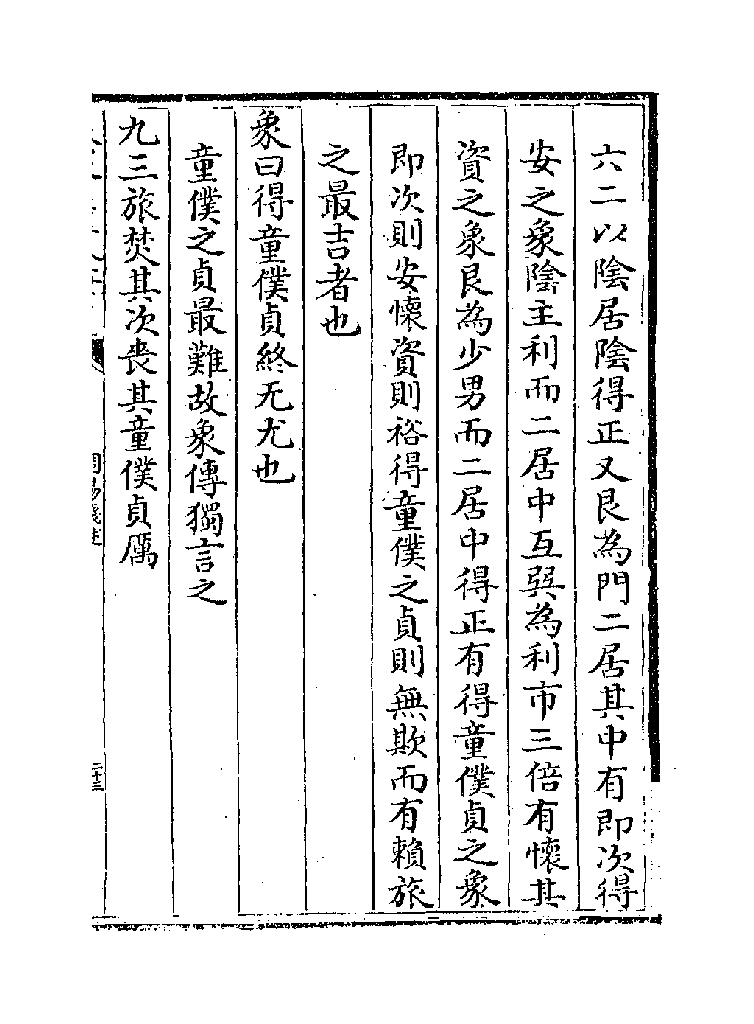 六二以陰居陰得正又艮為門二居其中有即次得
安之象陰主利而二居中互巽為利市三倍有懷其
資之象艮為少男而二居中得正有得童僕貞之象
即次則安懷資則裕得童僕之貞則無欺而有賴旅
之最吉者也
象曰得童僕貞終无尤也
童僕之貞最難故象傳獨言之
九三旅焚其次喪其童僕貞厲
周易淺述
二十三